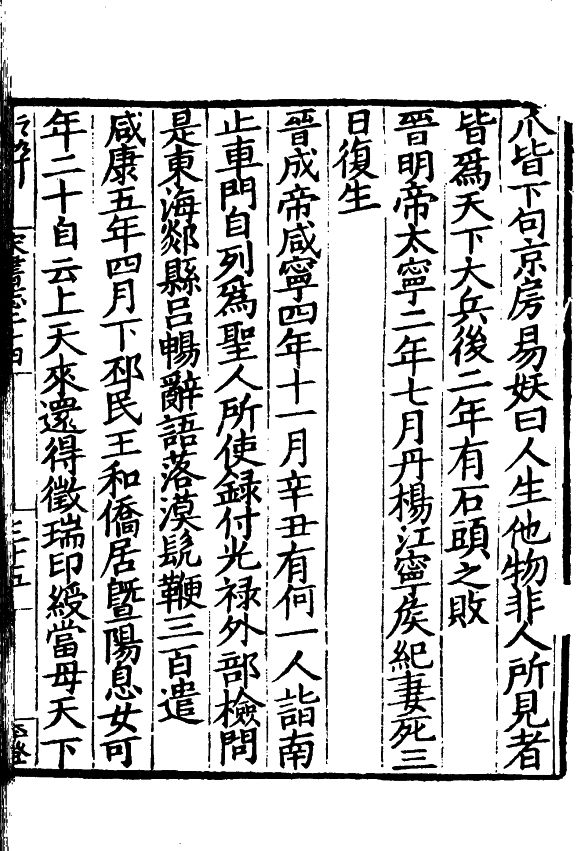 爪皆下句京房易妖曰人生他物非人所見者
皆爲天下大兵後二年有石頭之敗
晉明帝太寧二年七月丹楊江寧侯紀妻死三
日復生
晉成帝咸寧四年十一月辛丑有何一人詣南
止車門自列爲聖人所使録付光禄外部檢問
是東海郯縣吕暢辭語落漠髡鞭三百遣
咸康五年四月下邳民王和僑居暨陽息女可
年二十自云上天來還得徵瑞印綬當母天下